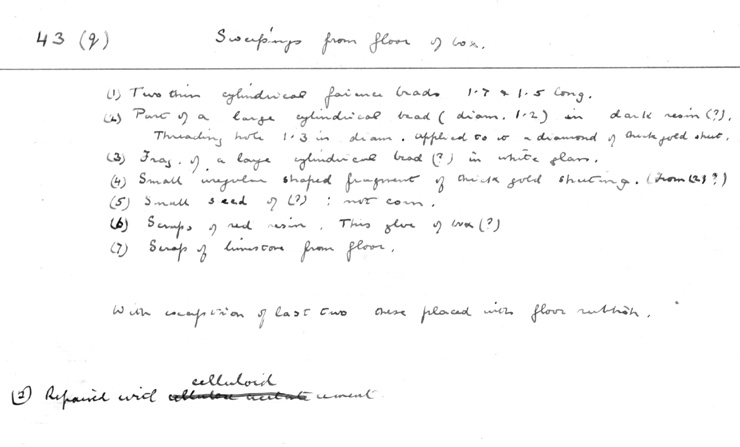 43 (q) Sweepings from floor of box.
(1) Two thin cylindrical faience beads 1.7 & 1.5 long.
(2) Part of a large cylindrical bead (diam. 1.2) in dark resin (?).
Threading hole 1.3 in diam. Applied to it a diamond of thick gold sheet.
(3) Frag. of a large cylindrical bead (?) in white glass.
(4) Small irregular shaped fragment of thick gold sheeting. (From (2)?)
(5) Small seed of (?) : not corn.
(6) Scraps of red resin. This glue of box (?)
(7) Scraps of limestone from floor.
With exception of last two these placed with floor rubbish.
celluloid
(2) Repaired with cellulose acetate cement